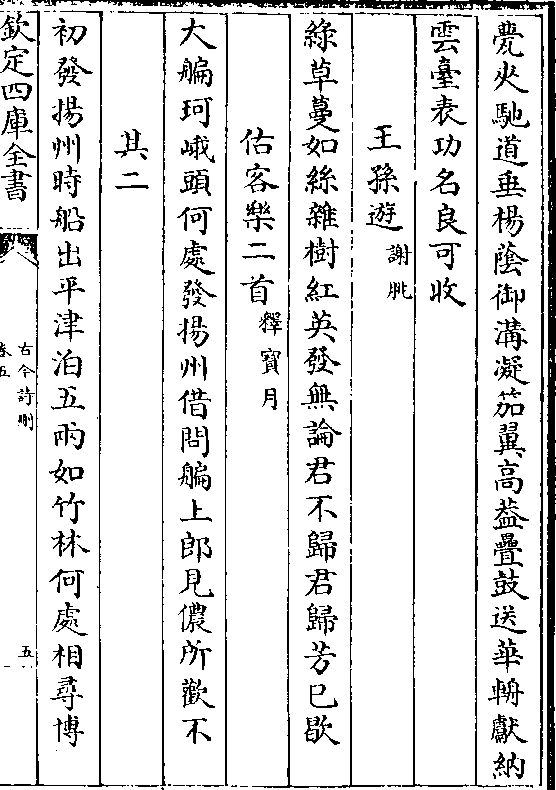 甍夾馳道垂楊蔭御溝凝笳翼高葢疊鼓送華輈獻納
雲臺表功名良可收
王孫遊謝朓
綠草蔓如絲雜樹紅英發無論君不歸君歸芳已歇
估客樂二首釋寶月
大艑珂峨頭何處發揚州借問艑上郎見儂所歡不
其二
初發揚州時船出平津泊五兩如竹林何處相尋博
欽定四庫全書
古今詩刪
卷五
五